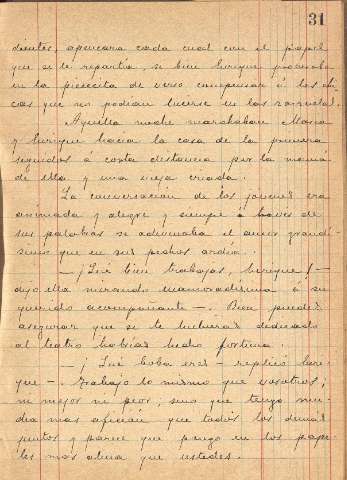 31
dientes, apencara cada cual con el papel
que se le repartia, si bien Enrique procuraba
en la piececita de verso compensar á los chi-
cas que no podian lucirse en las zarzuelas.
Aquella noche marchaban María
y Enrique hacia la casa de la primera
seguidos á corta distancia por la mamá
de ella y una vieja criada.
La conversación de los jóvenes era
animada y alegre y siempre á traves de
sus palabras se adivinaba el amor grandí-
simo que en sus pechos ardía.
— ¡Qué bien trabajas, Enrique! —
dijo ella mirando enamoradísima á su
querido acompañante —. Bien puedes
asegurar que si te hubieras dedicado
al teatro habías hecho fortuna.
— ¡Qué boba eres — replicó Enri-
que —. Trabajo lo mismo que vosotros;
ni mejor ni peor; sino que tengo mu-
cha más afición que todos los demás
juntos y parece que pongo en los pape-
les más alma que ustedes.